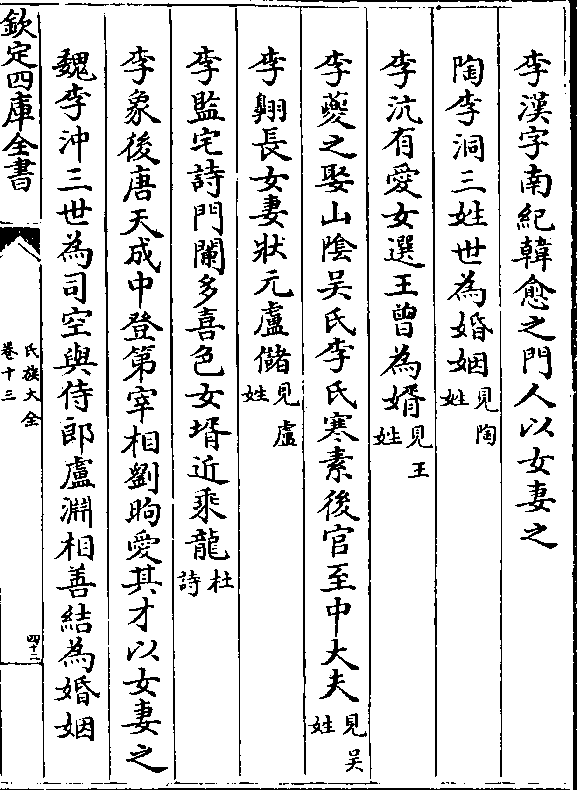 李漢字南紀韓愈之門人以女妻之
陶李洞三姓世為婚姻見陶姓
李沆有愛女選王曾為婿見王姓
李夔之娶山陰吴氏李氏寒素後官至中大夫見吴姓
李翺長女妻狀元盧儲見盧姓
李監宅詩門闌多喜色女壻近乘龍杜詩
李象後唐天成中登第宰相劉昫愛其才以女妻之
魏李沖三世為司空與侍郎盧淵相善結為婚姻
欽定四庫全書
氏族大全
卷十三
四十二